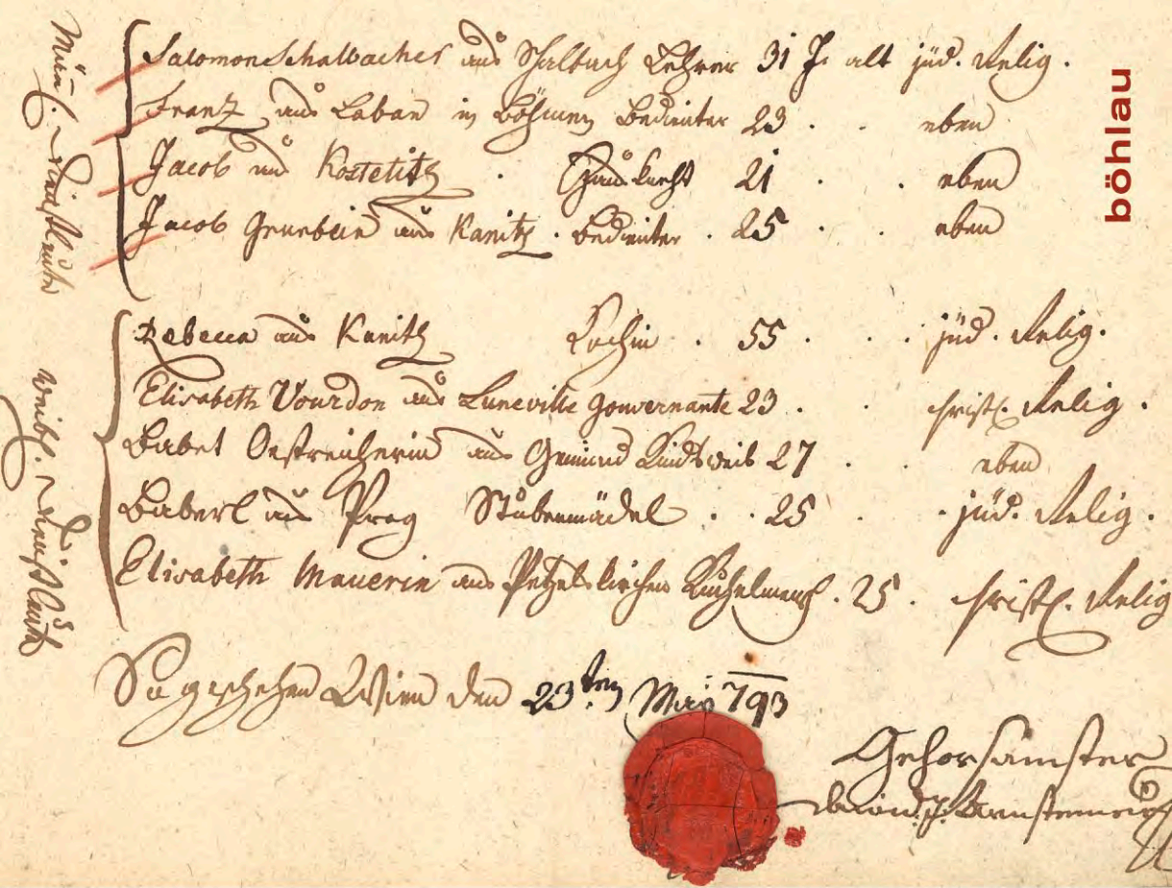 Männl. Dienstleute
Salomon Schalbacher aus Schalbach Lehrer 31 J. alt jüd. Relig.
Franz aus Laban in Böhmen Bedienter 23 . . eben
Jacob aus Kostetitz . Hausknecht 21 . . eben
Jacob Grünbein aus Kanitz . Bedienter . 25 . . eben
weibl. Dienstleute
Rebecca aus Kanitz Köchin . 55 . . jüd. Relig.
Elisabeth Vourdon aus Luneville Gouvernante 23 . . christl. Relig.
Babet Oestreicherin aus Gemünd Kindsweib 27 . eben
Baberl aus Prag Stubenmädel . . 25 . . jüd. Relig.
Elisabeth Mauerin aus Petzelskirchen Kuchelmensch . 25 . christl. Relig
So geschehen Wien den 23ten May 793
Gehorsamster
böhlau